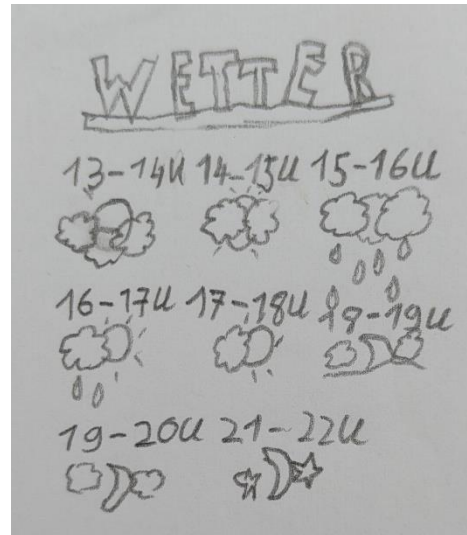 WETTER
13-14U 14-15U 15-16U
16-17U 17-18U 18-19U
19-20U 21-22U